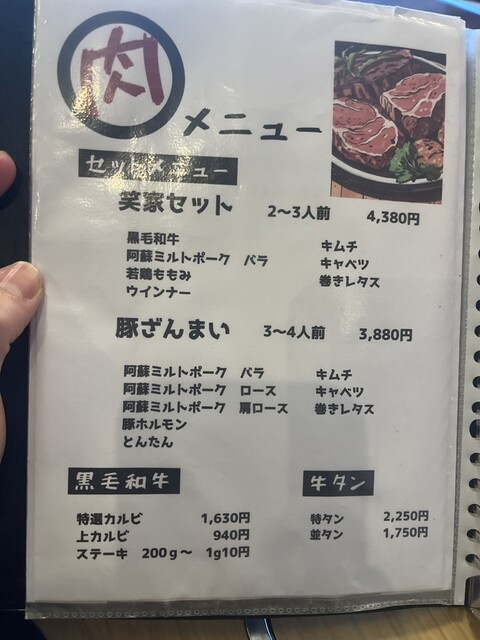 肉
メニュー
セットメニュー
笑家セット 2〜3人前 4,380円
黒毛和牛
阿蘇ミルトポーク バラ キムチ
若鶏ももみ キャベツ
ウインナー 巻きレタス
豚ざんまい 3〜4人前 3,880円
阿蘇ミルトポーク バラ キムチ
阿蘇ミルトポーク ロース キャベツ
阿蘇ミルトポーク 肩ロース 巻きレタス
豚ホルモン
とんたん
黒毛和牛
特選カルビ 1,630円
上カルビ 940円
ステーキ 200g〜 1g10円
牛タン
特タン 2,250円
並タン 1,750円